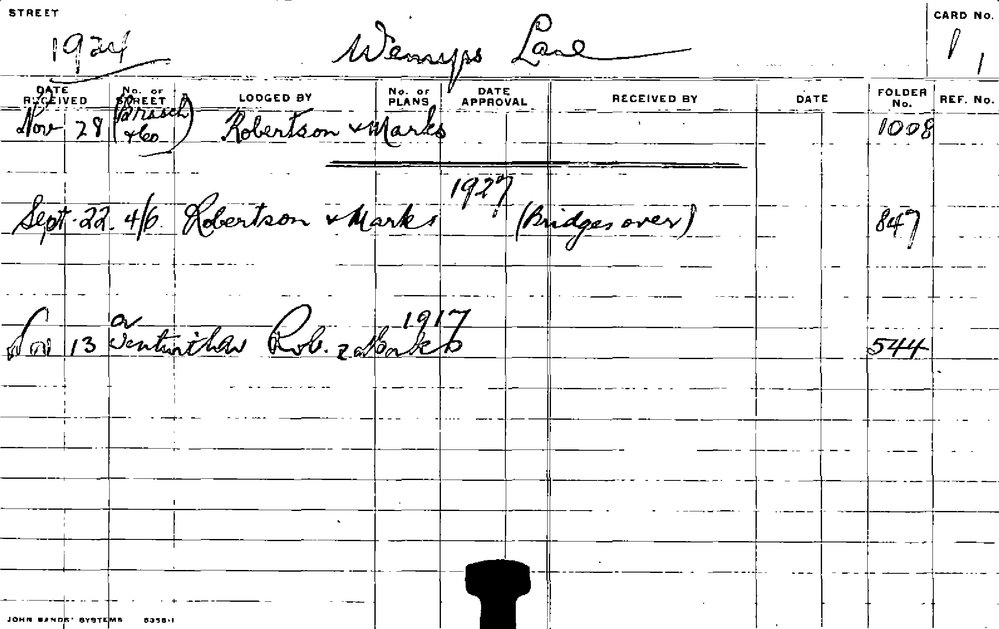 STREET CARD No.
1924 Wemyss Lane 1 1
DATE RECEIVED No. OF STREET LODGED BY No. OF PLANS DATE APPROVAL RECEIVED BY DATE FOLDER No. REF. No.
Nov 28 (Brasch & Co) Robertson & Marks 1008
1927
Sept. 22. 4/6. Robertson & Marks (Bridges over) 847
1917
13 Rob. & Marks 544
JOHN SANDS' SYSTEMS 6356-1